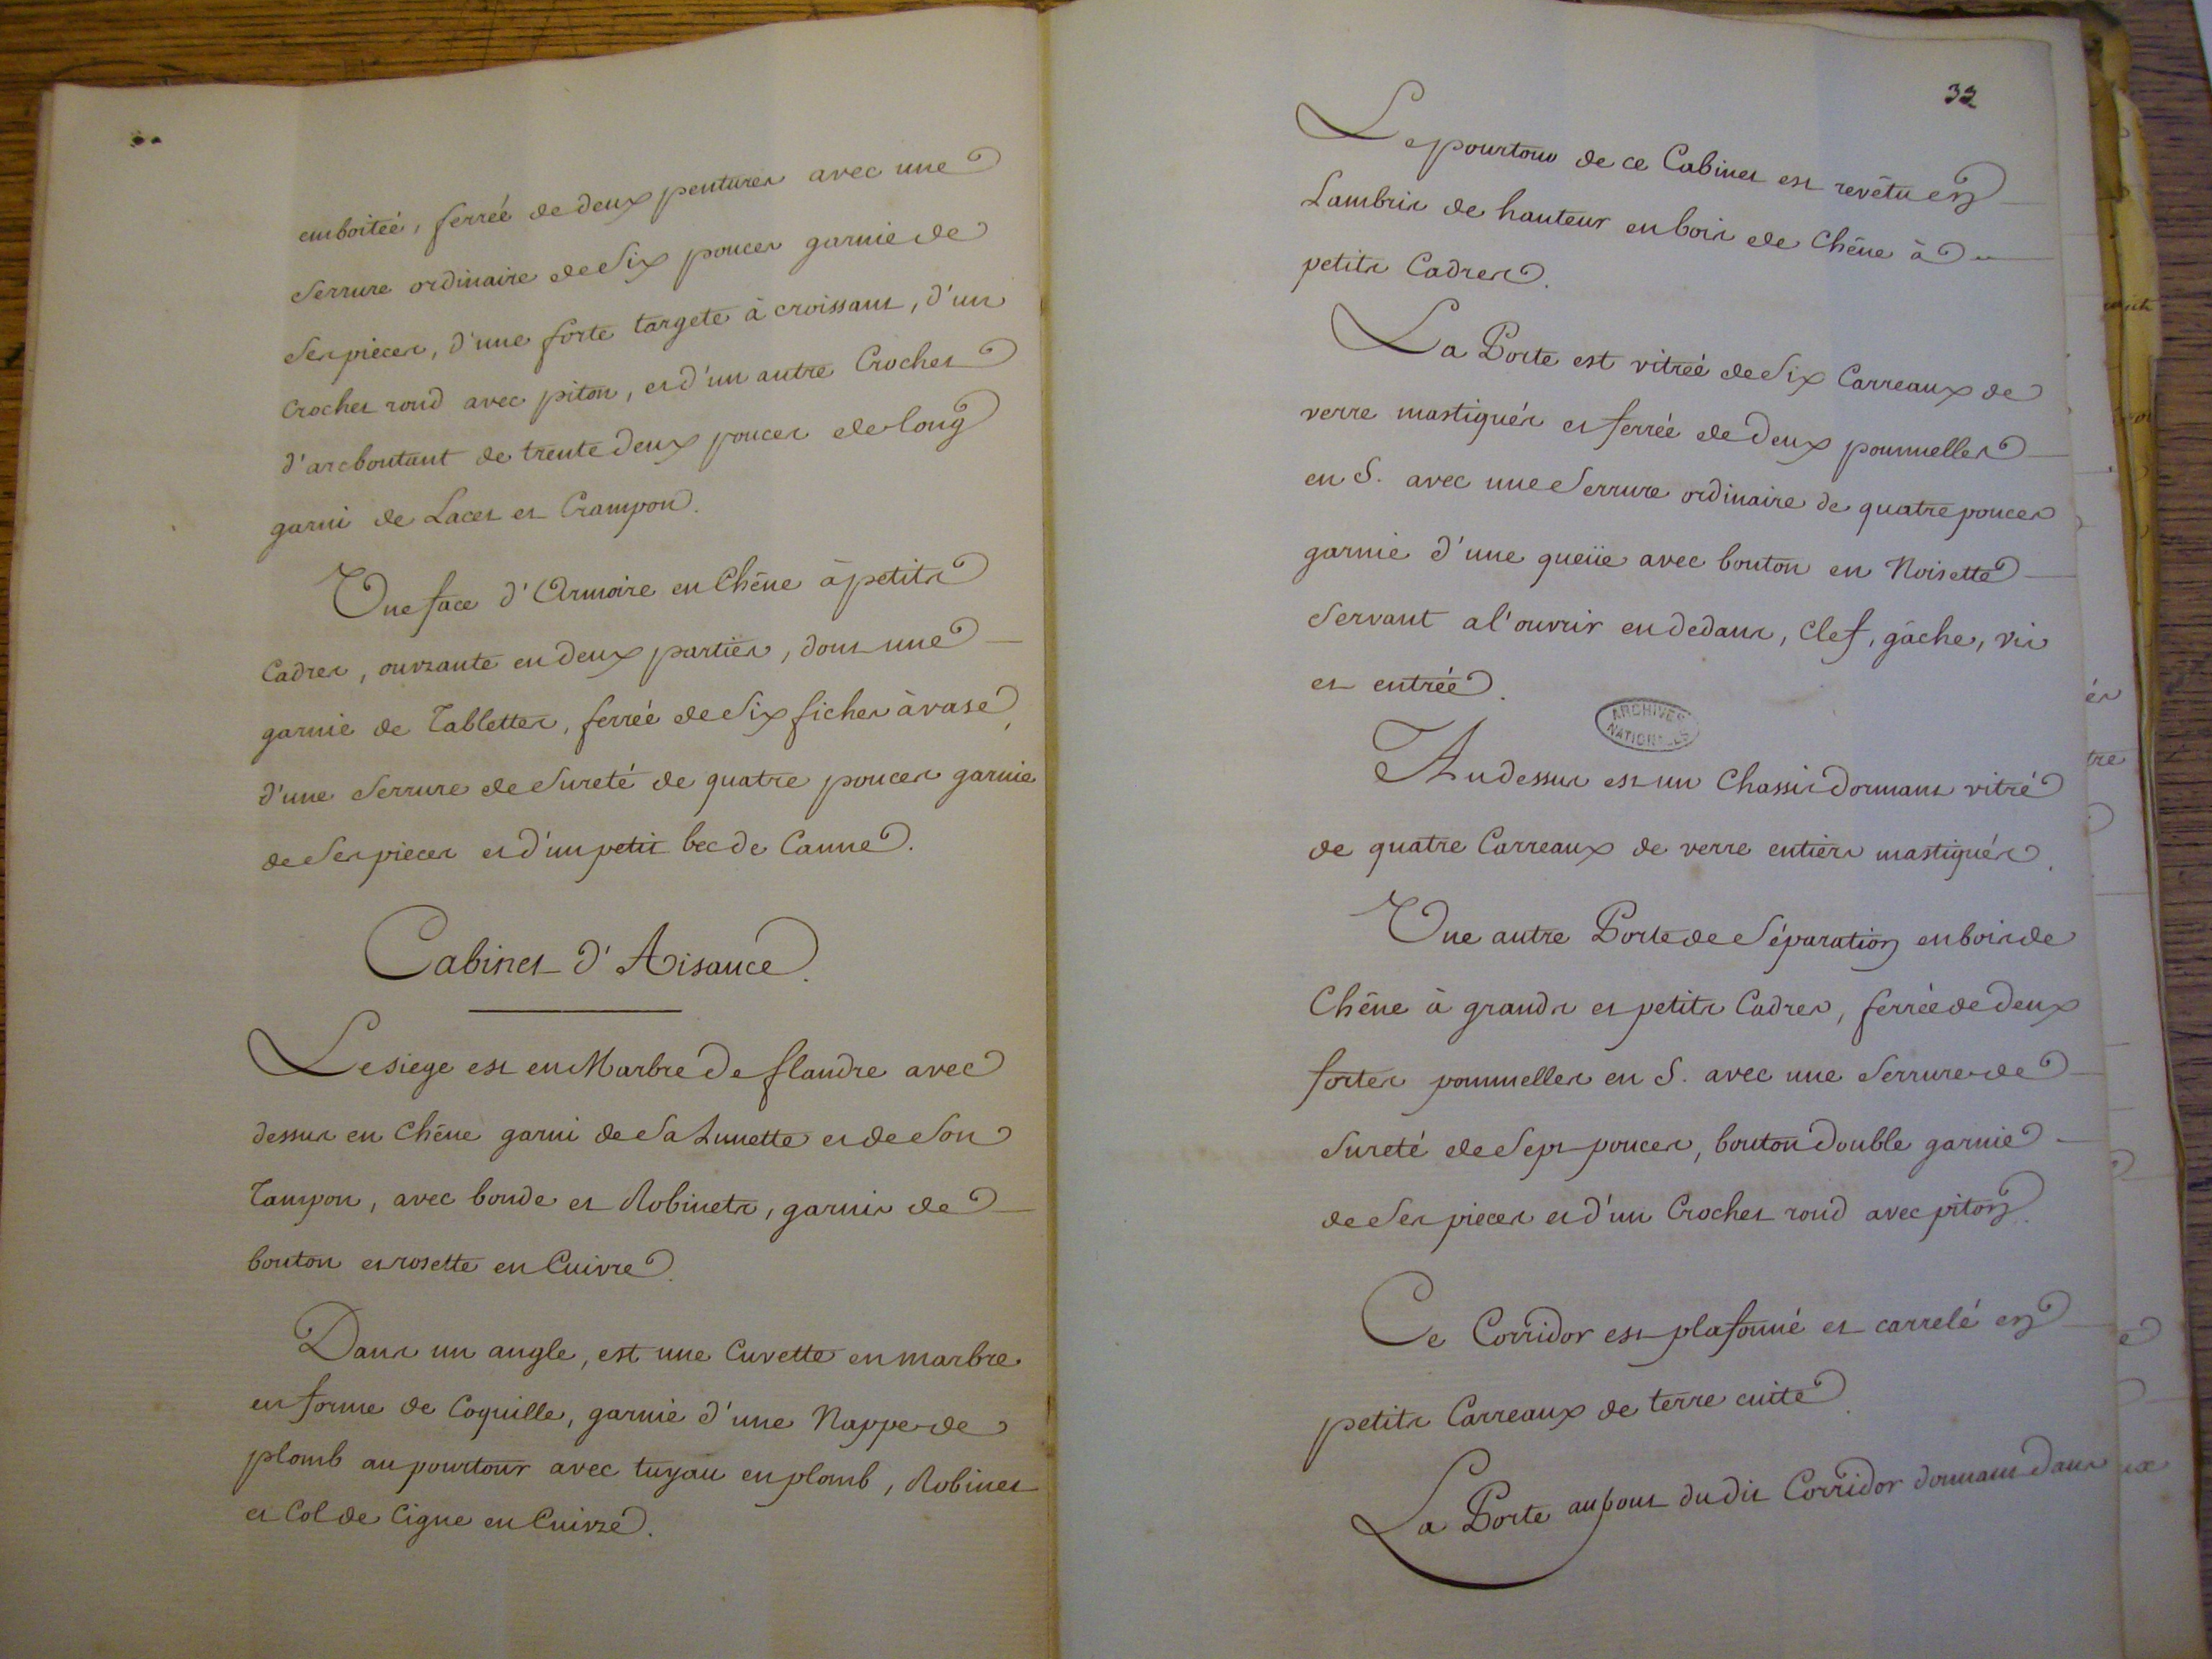 emboiteé, ferreé de deux pentures avec une
Serrure ordinaire de Six pouces garnie de
Ses pieces, d'une forte targete à croissant, d'un
Crochet rond avec piton, et d'un autre Crochet
d'arcboutant de trente deux pouces de long
garni de Lacet et Crampon.
Une face d'Armoire en Chêne à petits
Cadres, ouvrante en deux parties, dont une
garnie de Tablettes, ferreé de Six fiches à vase,
d'une Serrure de Sureté de quatre pouces garnie
de Ses pieces et d'un petit bec de Canne.
Cabinet d'Aisance.
Le siege est en Marbre de flandre avec
dessus en Chêne garni de Sa Lunette et de Son
Tampon, avec bonde et Robinets, garnis de
bouton et rosette en Cuivre.
Dans un angle, est une Cuvette en marbre
en forme de Coquille, garnie d'une Nappe de
plomb au pourtour avec tuyau en plomb, Robinet
et Col de Cigne en Cuivre.
32
Le pourtour de ce Cabinet est revêtu en
Lambris de hauteur en bois de Chêne à
petits Cadres.
La Porte est vitreé de Six Carreaux de
verre mastiqués et ferreé de deux poumelles
en S. avec une Serrure ordinaire de quatre pouces
garnie d'une queüe avec bouton en Noisette
Servant a l'ouvrir en dedans, Clef, gâche, vis
et entreé.
ARCHIVES
NATIONALES
Au dessus est un Chassis dormant vitré
de quatre Carreaux de verre entiers mastiqués.
Une autre Porte de Séparation en bois de
Chêne à grands et petits Cadres, ferreé de deux
fortes poumelles en S. avec une Serrure de
Sureté de Sept pouces, bouton double garnie
de Ses pieces et d'un Crochet rond avec piton.
Ce Corridor est plafonné et carrelé en
petits Carreaux de terre cuite.
La Porte au bout du dit Corridor donnant dans